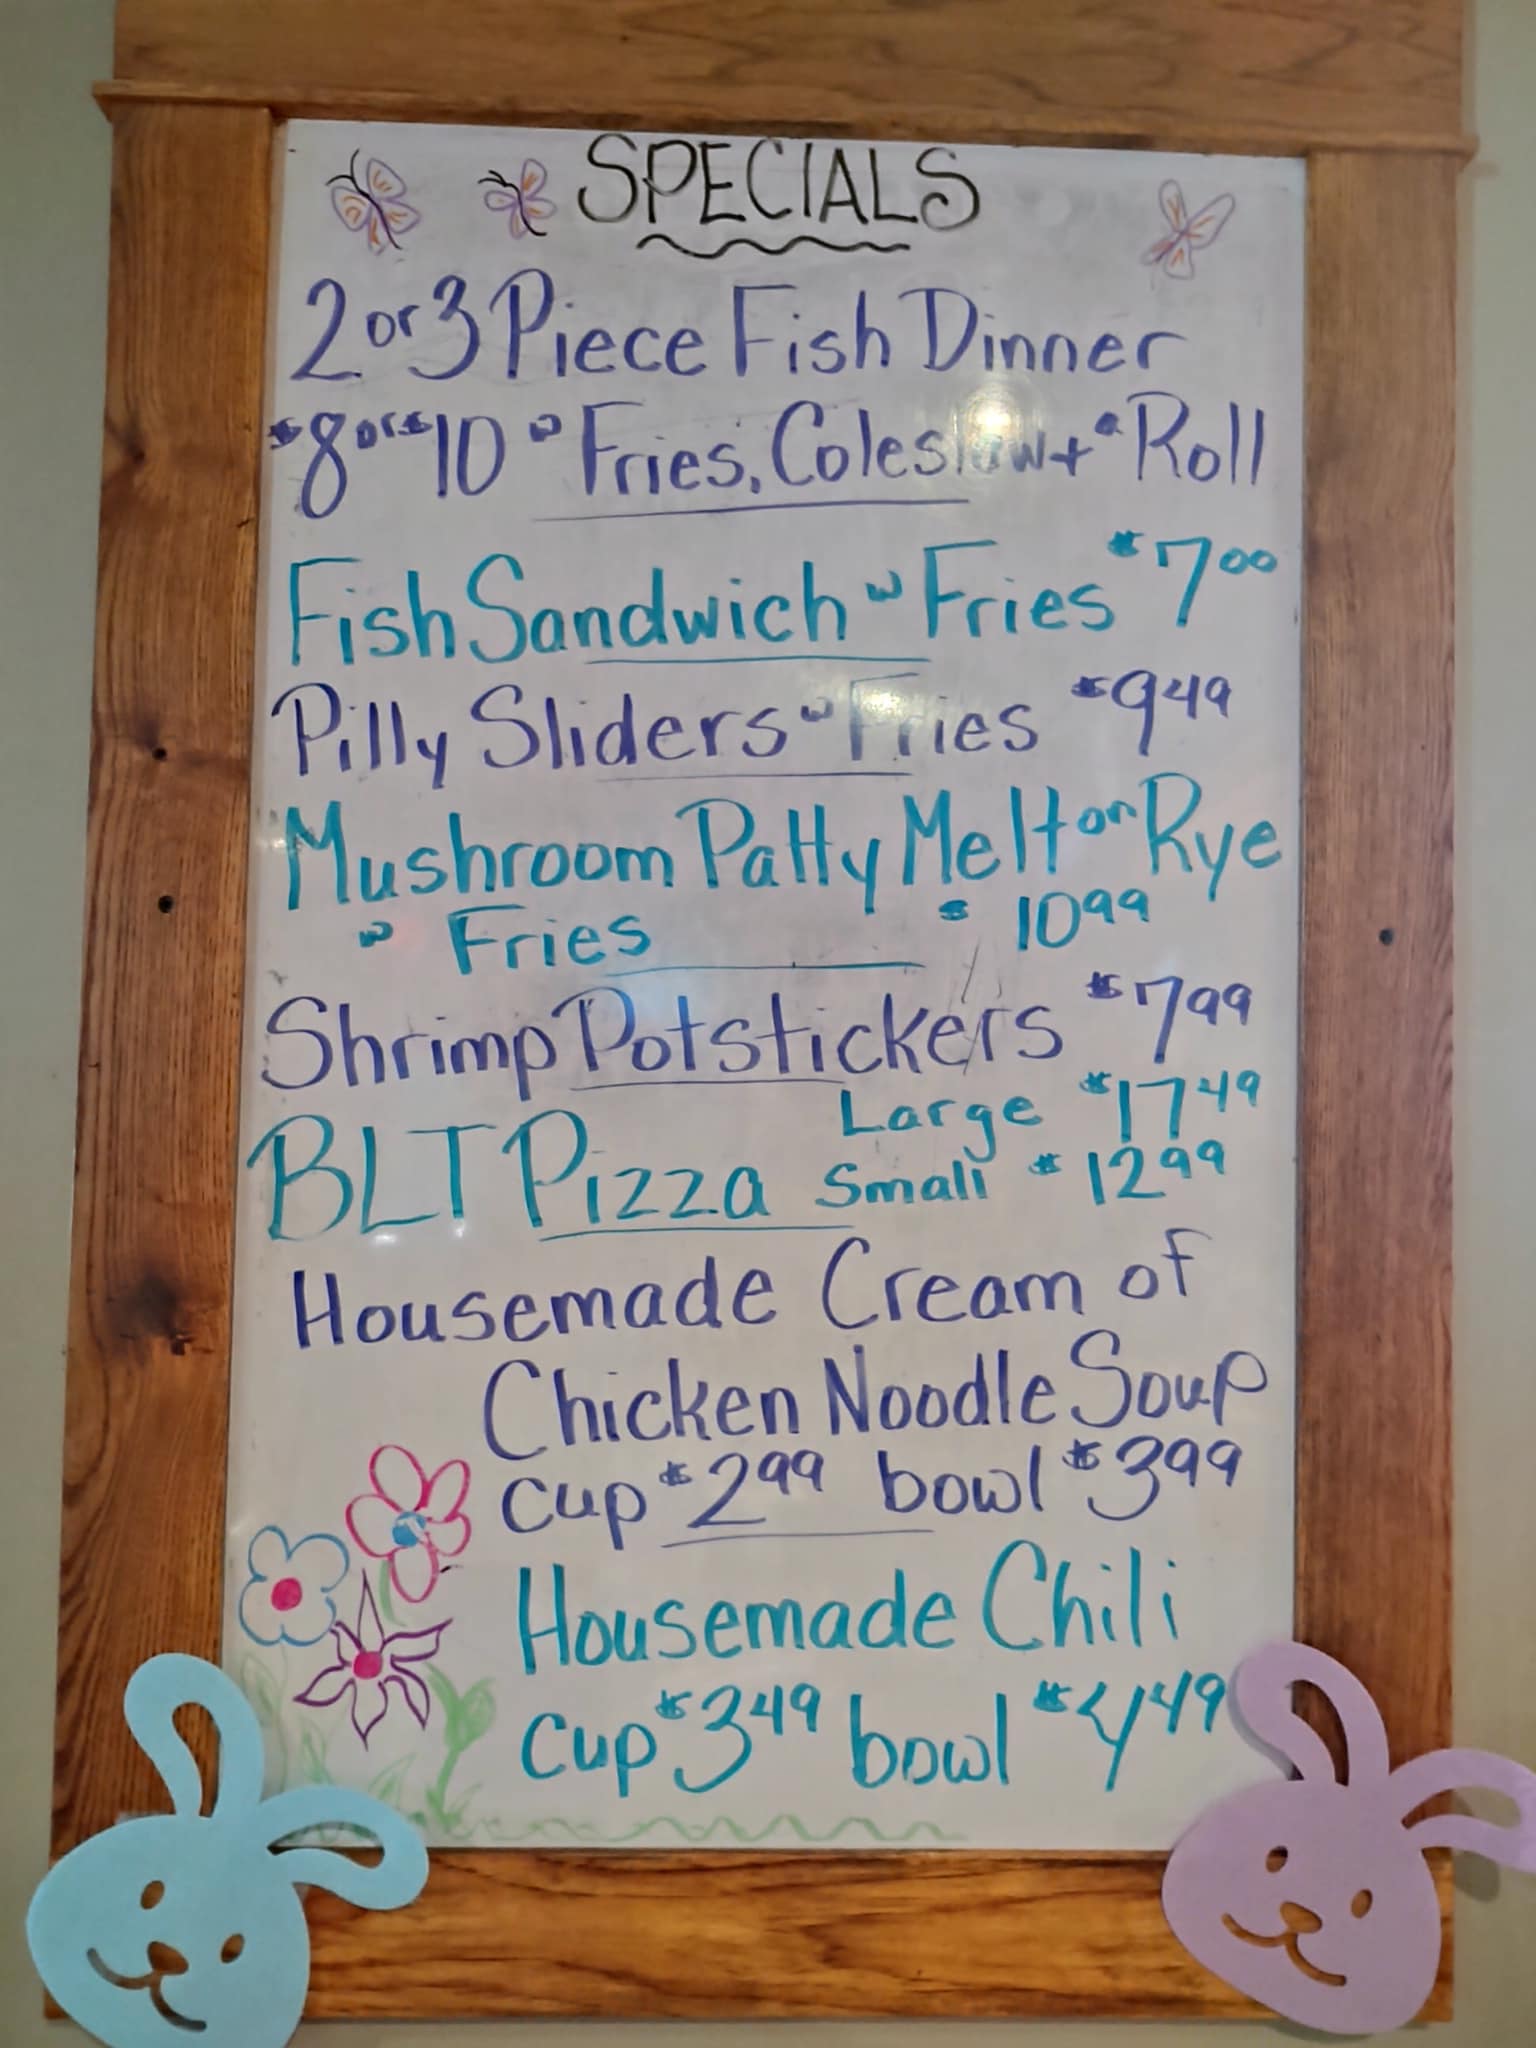 SPECIALS
2 or 3 Piece Fish Dinner
$8 or $10 w Fries, Coleslaw + a Roll
Fish Sandwich w Fries $7.00
Pilly Sliders w Fries $9.49
Mushroom Patty Melt on Rye
w Fries $10.99
Shrimp Potstickers $7.99
BLT Pizza Large $17.49
Small $12.99
Housemade Cream of
Chicken Noodle Soup
cup $2.99 bowl $3.99
Housemade Chili
cup $3.49 bowl $4.49